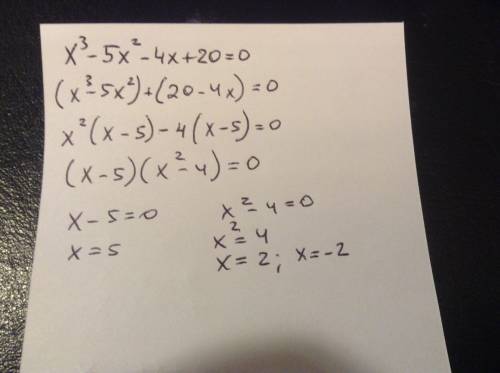 x³ - 5x² - 4x + 20 = 0
(x³ - 5x²) + (20 - 4x) = 0
x² (x - 5) - 4 (x - 5) = 0
(x - 5) (x² - 4) = 0
x - 5 = 0
x = 5
x² - 4 = 0
x² = 4
x = 2; x = -2